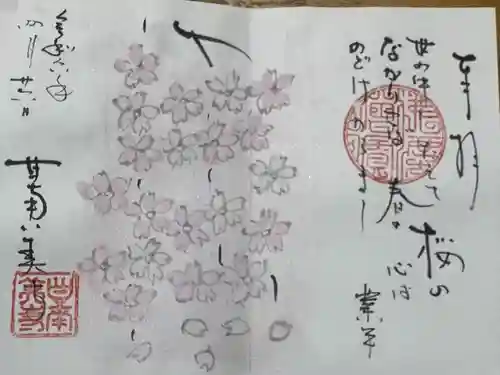 奉拝
世の中に たえて 桜の
なかりせば 春の 心は
のどけからまし 業平
令和六年
四月廿六日
甘南美寺